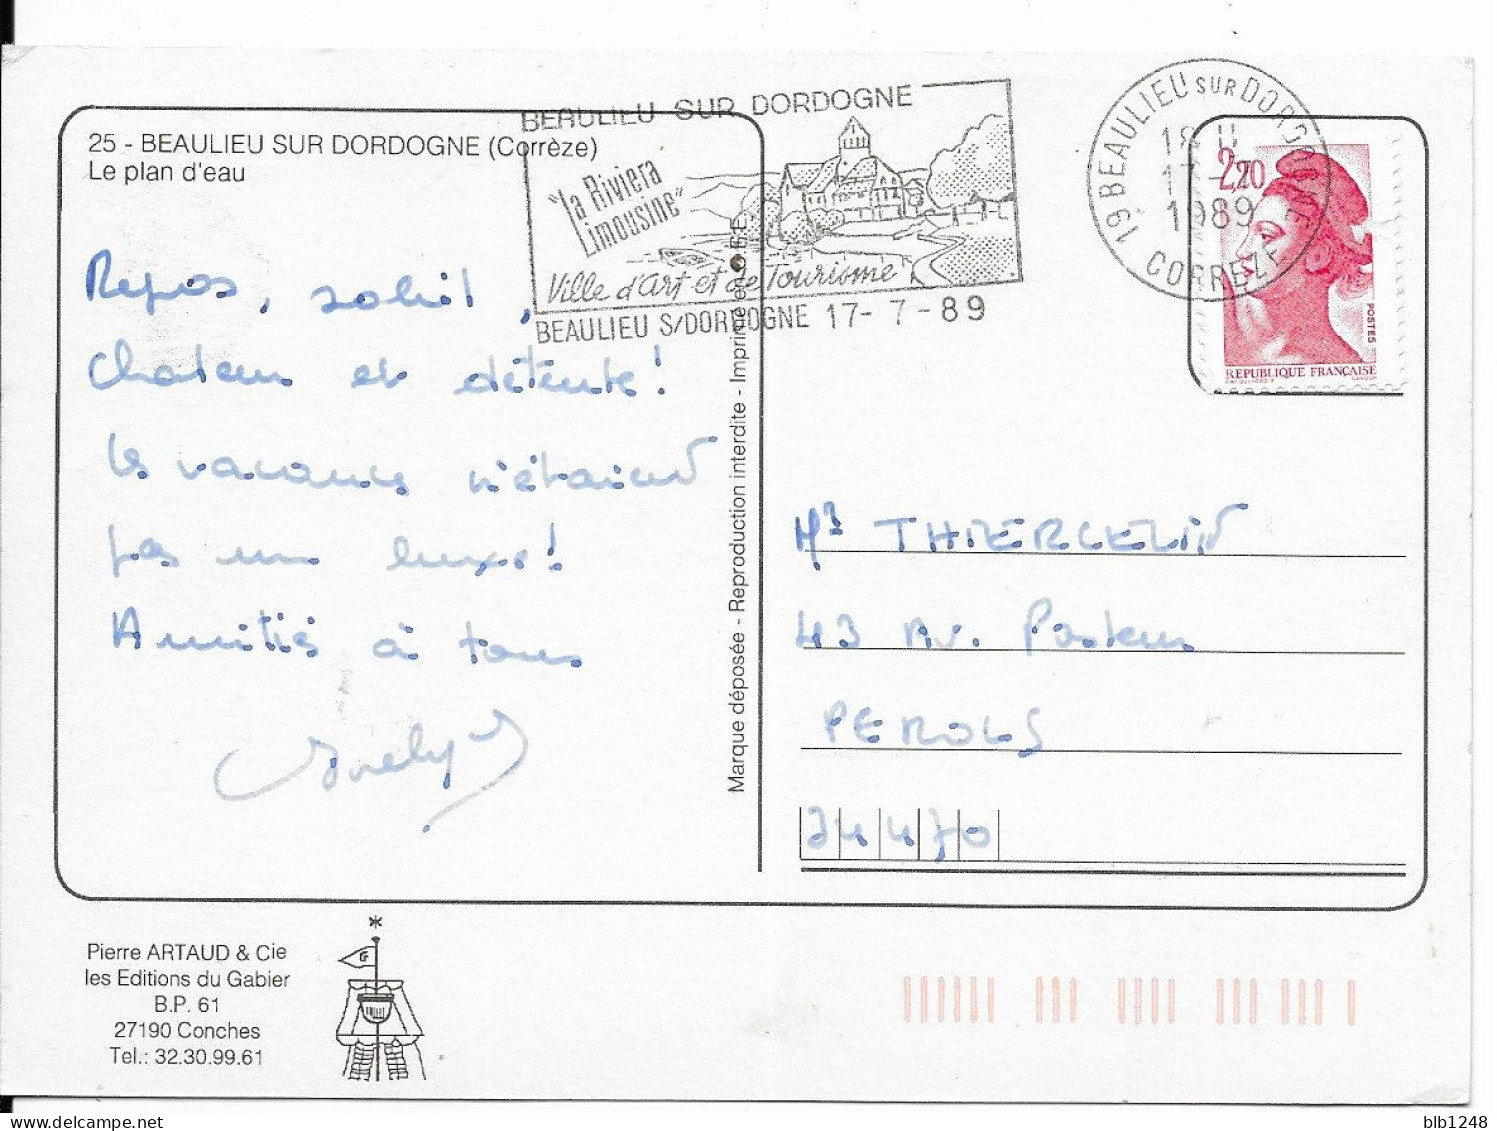 BEAULIEU SUR DORDOGNE
"la Riviera
Limousine"
Ville d'Art et de Tourisme
BEAULIEU S/DORDOGNE 17-7-89
19 BEAULIEU SUR DORDOGNE
18 H
17 -7
1989
CORREZE
2,20
POSTES
REPUBLIQUE FRANÇAISE
25 - BEAULIEU SUR DORDOGNE (Corrèze)
Le plan d'eau
Repos, soleil,
chaleur et détente!
les vacances n'étaient
pas un luxe!
Amitiés à tous
Evelyne
Marque déposée - Reproduction interdite - Imprimé en C.E.E.
Mr THIERCELIN
43 Av. Pasteur
PEROLS
34470
Pierre ARTAUD & Cie
les Editions du Gabier
B.P. 61
27190 Conches
Tel.: 32.30.99.61
G
blb1248